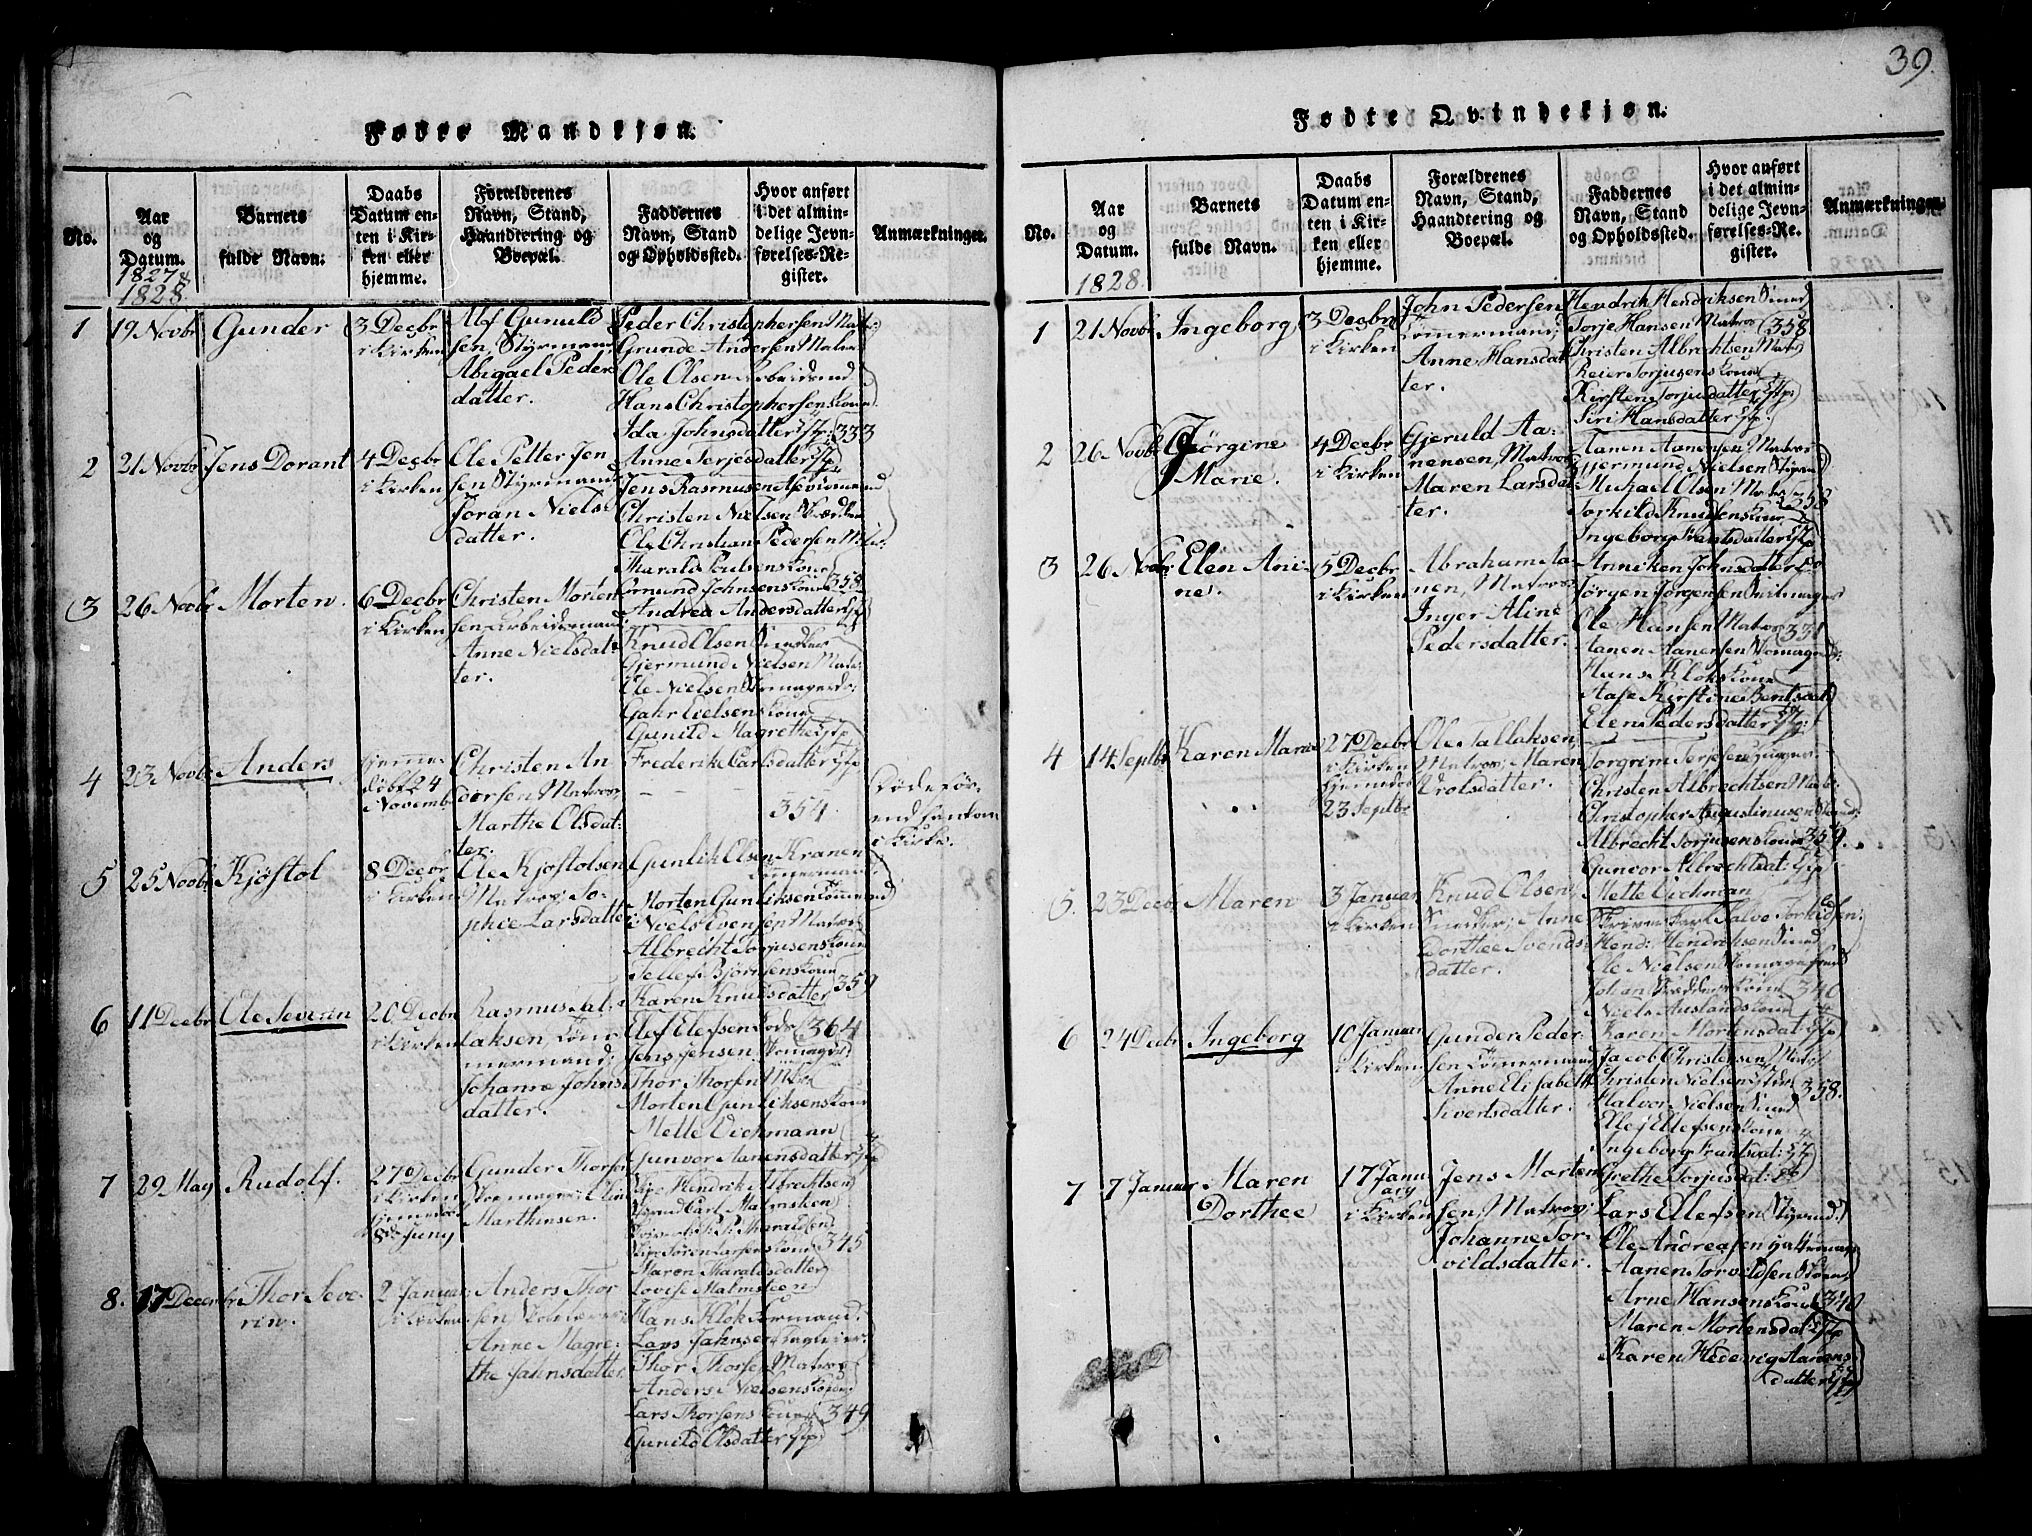 39.
Fødte Mandkjøn.
No.
Aar
og
Datum.
1827 &
1828
Barnets
fulde Navn.
Daabs
Datum en-
ten i Kir-
ken eller
hjemme.
Forældrenes
Navn, Stand,
Haandtering og
Boepæl.
Faddernes
Navn, Stand
og Opholdssted.
Hvor anført
i det almin-
delige Jevn-
førelses-Re-
gister.
Anmærkninger.
1
19 Novbr
Gunder
3 Decbr
i Kirken
Alf Gunuld
sen, Styrmand,
Abigael Peders
datter.
Peder Christophersen Matr:
Grunde Andersen
Ole Olsen Arbeidsmd
Hans Christophersens Kone
Ida Johnsdatter 333
2
21 Novbr
Jens Dorant
4 Decbr
i Kirken
Ole Petter Jen
sen Styrmand
Joran Niels
datter.
Anne Terjesdatter
Jens Rasmusen
Christen Nielsen
Ole Christian Pedersen
Tharald Poulsens Kone
3
26 Novbr
Morten.
6 Decbr
i Kirken
Christen Morten
sen Arbeidsmand
Anne Nielsdat-
ter.
Ormund Johnsens Kone 358
Andrea Andersdatter
Knud Olsen Snedker
Gjermund Nielsen Matr:
Ole Nielsen Skomager
Kone
Gunild Magrethe
4
23 Novbr
Anders
hjemme
døbt 24
Novemb
Christen An
dersen Matros,
Marthe Olsdat:
ter.
Frederike Carlsdatter
354
Døde før
end han kom
i Kirke.
5
25 Novbr
Kjøstol
8 Decbr
i Kirken
Ole Kjøstolsen
Matros; So-
phie Larsdatter
Gunlik Olsen Kranen
Tømermand
Morten Gunliksen Tømmermd
Niels Evensen Matros
Albrecht Torjusens Kone
Tellef Bjørnsens Kone
Karen Knudsdatter 359
6
11 Decbr
Ole Severin
20 Decbr
i Kirken
Rasmus Tal-
laksen, Tøm-
mermand;
Johanne Johns
datter.
Elef Elefsen 364
Jens Jensen Skomager
Thor Thorsen Matr
Morten Gunliksens Kone
Mette Eichmann
Gunvor Aanensdatter
7
29 May
Rudolf.
27 Decbr
i Kirken
hjemmedøbt
8de Juny
Gunder Thorsen
Skomager;
Marthinsen.
Hendrik Albrechtsen
Carl Malmsteen
345
Maren Tharaldsdatter
Lovise Malmsteen
8.
17 Decembr
Thor Seve-
rin.
2 Januar
i Kirken
Anders Thor
sen
Anne Magre-
the Jahnsdatter.
Hans Klok
Lars Jahnsen
Thor Thorsen Matros
Anders Nielsens Kone
Lars Thorsens Kone 349
Gunild Olsdatter
Fødte Qvindekjøn.
No.
Aar
og
Datum.
1828.
Barnets
fulde Navn.
Daabs
Datum en-
ten i Kir-
ken eller
hjemme.
Forældrenes
Navn, Stand,
Haandtering og
Boepæl.
Faddernes
Navn, Stand
og Opholdssted.
Hvor anført
i det almin-
delige Jevn-
førelses-Re-
gister.
Anmærkninger.
1
21 Novbr
Ingeborg
3 Decbr
i Kirken
John Pedersen
Tømermand;
Anne Hansdat
ter.
Hendrik Hendriksen
Torje Hansen Matros 358
Christen Albrechtsen Matr
Reier Torjusens Kone
Kirsten Torjusdatter
Siri Hansdatter
2
26 Novbr
Jørgine
Marie.
4 Decbr
i Kirken
Gjeruld Aa-
nensen, Matros,
Maren Larsdat
ter.
Aanen Aanensen, Matros
Gjermund Nielsen
Michael Olsen 358
Torkild Knudsens Kone
Ingeborg Frantsdatter
3
26 Novbr
Elen Ani-
ne.
5 Decbr
i Kirken
Abraham Aa-
nen, Matros;
Inger Aline
Pedersdatter.
Anniken Johnsdatter
Jørgen Jørgensen Seilmager
Ole Hansen Matros 331
Aanen Aanensen Skomager
Hans Kloks Kone
Aase Kirstine Bentsdat
Elen Pedersdatter
4
14 Septbr
Karen Marie
27 Decbr
i Kirken
hjemmedøbt
23 Septbr
Ole Tallaksen,
Matros; Maren
Trolsdatter.
Torgrim Terjesen
Christen Albrechtsen Matr:
Christopher Augustinusen
Albrecht Torjusens Kone 359.
Gunvor Albrechtsdat:
5.
23 Decbr
Maren
3 Januar
i Kirken
Knud Olsen,
Snedker; Anne
Dorthee Svends-
datter.
Mette Eichman
Hend: Hendriksen
Ole Nielsen Skomager
Kone 340
Niels Auslands Kone
6
24 Decbr
Ingeborg
10 Januar
i Kirken
Gunder Peder-
sen Tømermand
Anne Elisabeth
Sivertsdatter.
Karen Mortensdat
Jacob Christensen Matr
Christen Nielsen 358.
Halvor Nielsen
Ellef Ellefsens Kone
Ingeborg Frantsdat:
7
7 Januar
Maren
Dorthee
17 Janu
ary
i Kirken
Jens Morten
sen, Matros;
Johanne Tor-
vildsdatter.
Grethe Torjusdat:
Lars Ellefsen Styrmd
Ole Andreasen Hattemager
Aanen Torvildsen
Arne Hansens Kone 340
Maren Mortensdat:
Karen Hedevig Aanens-
datter